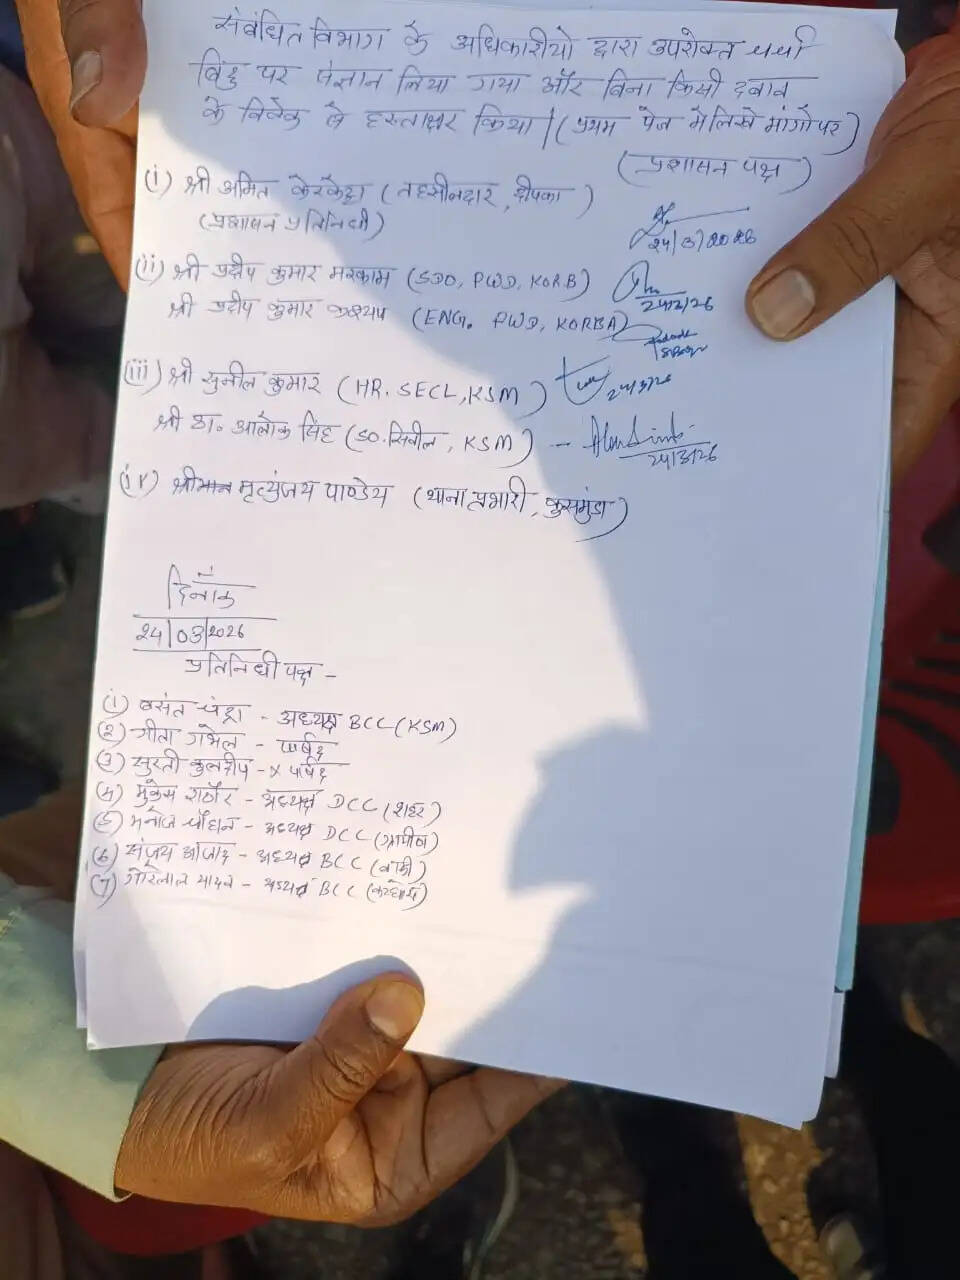 संबंधित विभाग के अधिकारीयो द्वारा उपरोक्त चर्चा
बिंदु पर संज्ञान लिया गया और बिना किसी दबाव
के विवेक से हस्ताक्षर किया | (प्रथम पेज मे लिखे मांगो पर)
(प्रशासन पक्ष)
(i) श्री अमित केरकेट्टा (तहसीलदार, दीपका)
(प्रशासन प्रतिनिधी)
24/3/2026
(ii) श्री प्रदीप कुमार मरकाम (SDO, PWD, KORB)
24/3/26
श्री प्रदीप कुमार कश्यप (ENG. PWD, KORBA)
(iii) श्री सुनील कुमार (HR. SECL, KSM)
24/3/26
श्री डा. आलोक सिंह (SO. सिवील, KSM) -
24/3/26
(iv) श्रीमान मृत्युंजय पाण्डेय (थाना प्रभारी, कुसमुंडा)
दिनाँक
24/03/2026
प्रतिनिधी पक्ष -
(1) बसंत चंद्रा - अध्यक्ष BCC (KSM)
(2) गीता गभेल - पार्षद
(3) सुरती कुलदीप - x पार्षद
(4) मुकेस राठौर - अध्यक्ष DCC (शहर)
(5) मनोज चौहान - अध्यक्ष DCC (ग्रामीण)
(6) संजय आजाद - अध्यक्ष BCC
(7) यादव - अध्यक्ष BCC